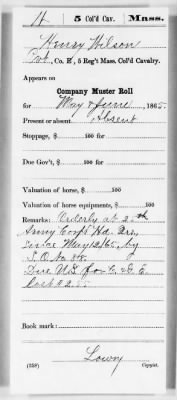 H 5 Col'd Cav. Mass.
Henry Wilson
Pvt, Co. E, 5 Reg't Mass. Col'd Cavalry.
Appears on
Company Muster Roll
for May & June, 1865.
Present or absent. Absent
Stoppage, $ 100 for
Due Gov't, $ 100 for
Valuation of horse, $ 100
Valuation of horse equipments, $ 100
Remarks: Orderly at 25th
Army Corps Hd. Qrs.
since May 12/65, by
S.O. No 88.
Due U.S. for C. & G. E.
Lost $2
Book mark:
Lowry
(358) Copyist.